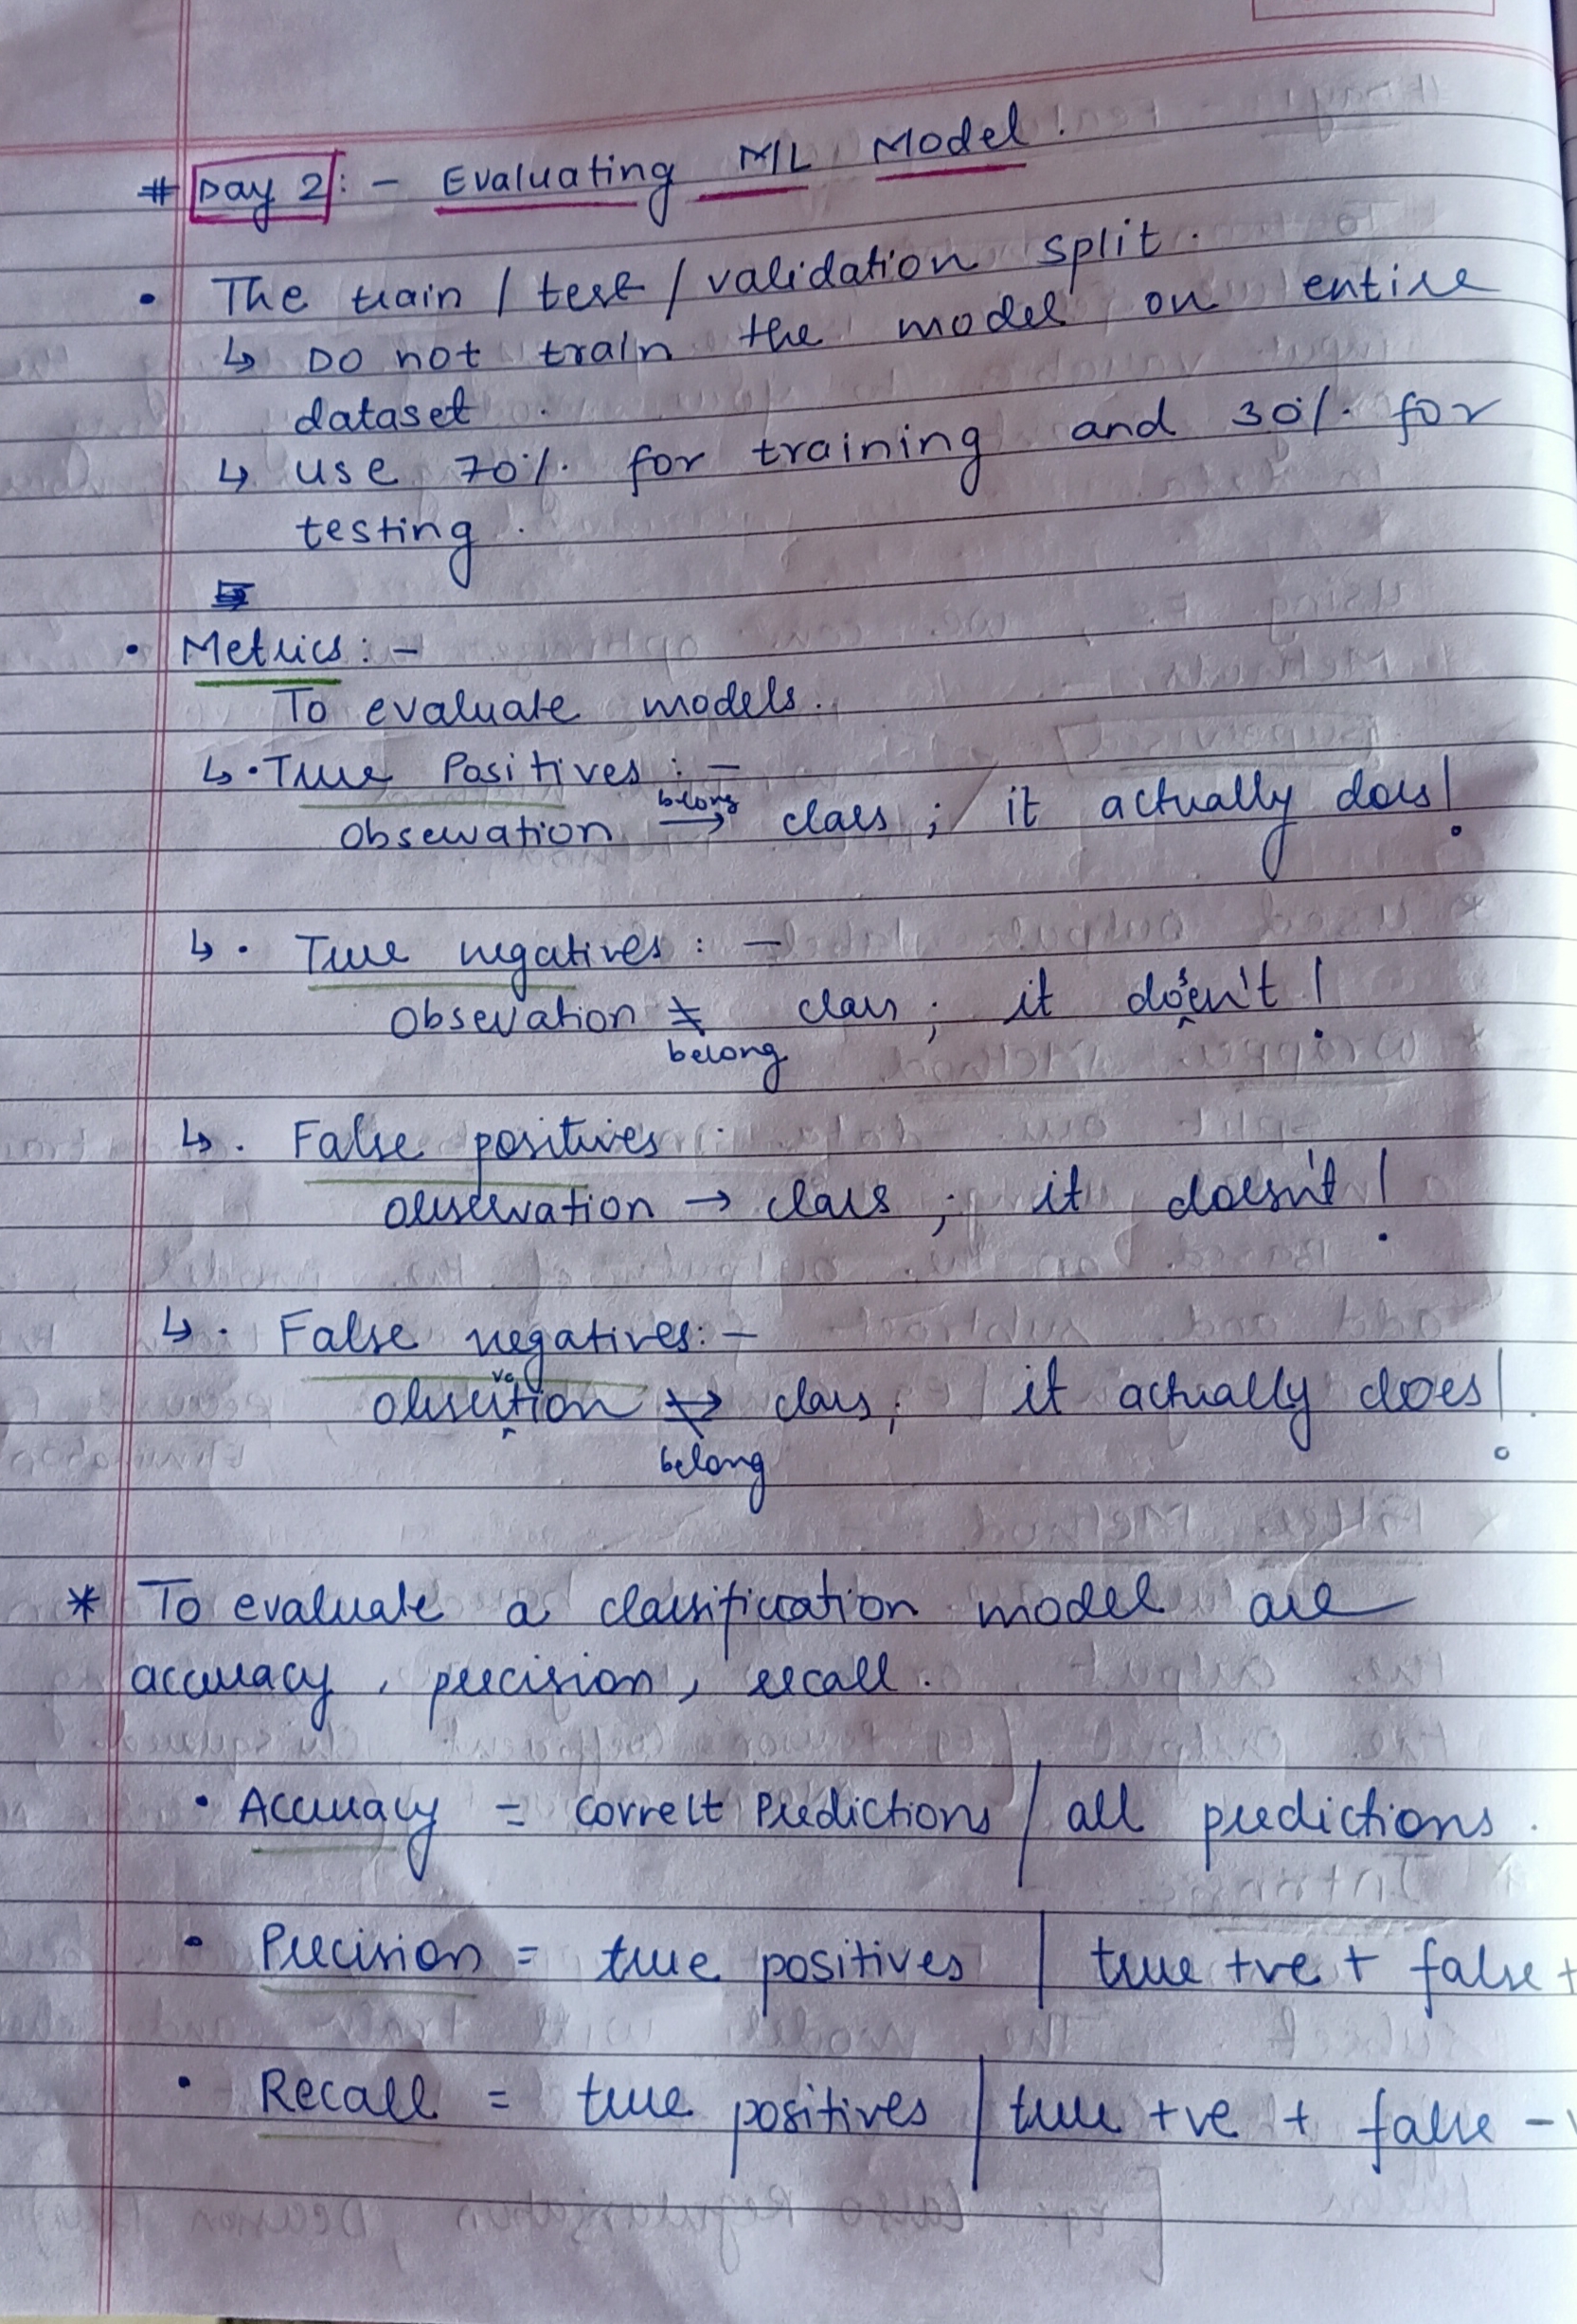 # Day 2 : - Evaluating ML Model.
• The train / test / validation split.
↳ Do not train the model on entire
dataset.
↳ use 70% for training and 30% for
testing.
• Metrics : -
To evaluate models.
↳ • True Positives : -
belong
Observation → class ; it actually does!
↳ • True negatives : -
Observation ≠ class ; it doesn't !
belong
↳ • False positives
observation → class ; it doesn't !
↳ • False negatives: -
observation ↛ class ; it actually does!
belong
* To evaluate a classification model are
accuracy, precision, recall.
• Accuracy = correct Predictions / all predictions.
• Precision = true positives / true +ve + false +
• Recall = true positives / true +ve + false -